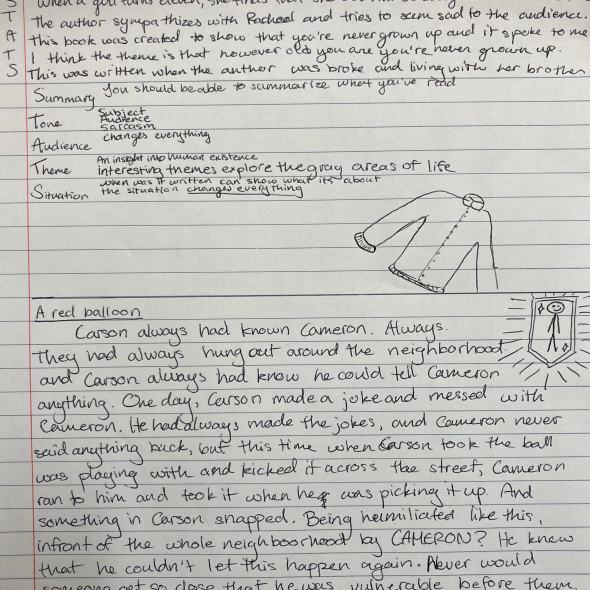 T The author sympathizes with Racheal and tries to seem sad to the audience.
A This book was created to show that you're never grown up and it spoke to me
T I think the theme is that however old you are you're never grown up.
S This was written when the author was broke and living with her brother
Summary You should be able to summarize what you've read
Tone Subject
Audience
Sarcasm
Audience changes everything
Theme An insight into human existence
interesting themes explore the gray areas of life
Situation when was it written can show what its about
the situation changes everything
A red balloon
Carson always had known Cameron. Always.
They had always hung out around the neighborhood.
and Carson always had know he could tell Cameron
anything. One day, Carson made a joke and messed with
Cameron. He had always made the jokes, and Cameron never
said anything back, but this time when Carson took the ball
was playing with and kicked it across the street, Cameron
ran to him and took it when he was picking it up. And
something in Carson snapped. Being heimiliated like this,
infront of the whole neighboorhood by CAMERON? He knew
that he couldn't let this happen again. Never would
someone get so close that he was vulnerable before them.